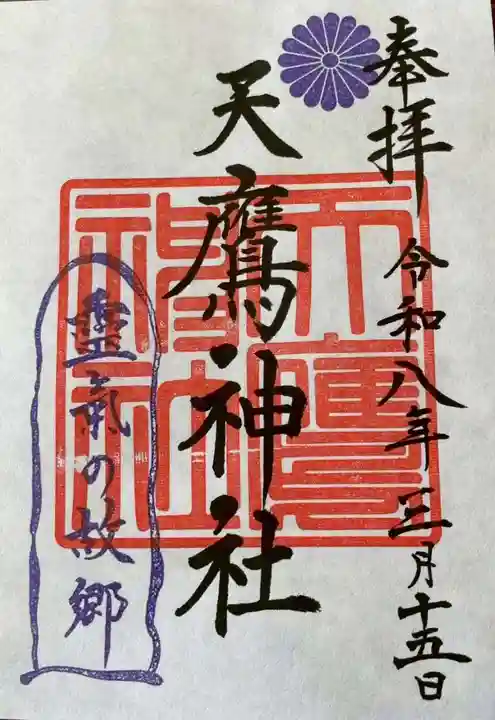 奉拝
令和八年三月十五日
天鷹神社
天鷹神社
霊氣の故郷